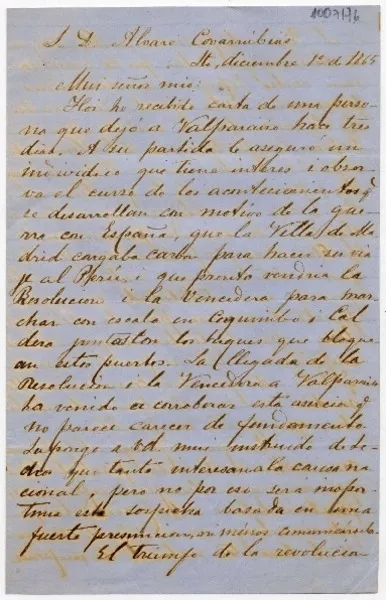 1007176
S. D. Alvaro Covarrubias
Stº, diciembre 1º de 1865
Mui señor mio:
Hoi he recibido carta de una perso
na que dejó a Valparaiso hace tres
dias. A su partida le aseguró un
individuo que tiene interes i obser
va el curso de los acontecimientos q.
se desarrollan con motivo de la gue
rra con España, que la Villa de Ma
drid cargaba carbon para hacer su via
je al Perú i que pronto vendria la
Resolucion i la Vencedora para mar
char con escala en Coquimbo i Cal
dera con los buques que bloque
an estos puertos. La llegada de la
Resolucion i la Vencedora a Valparaiso
ha venido a corroborar esta noticia q.
no parece carecer de fundamento.
Supongo a Ud. mui instruido de to
do que tanto interesa a la causa na
cional, pero no por eso será inopor
tuna esta sospecha basada en una
fuerte presuncion, ni menos comunicársela.
El triunfo de la revolucion